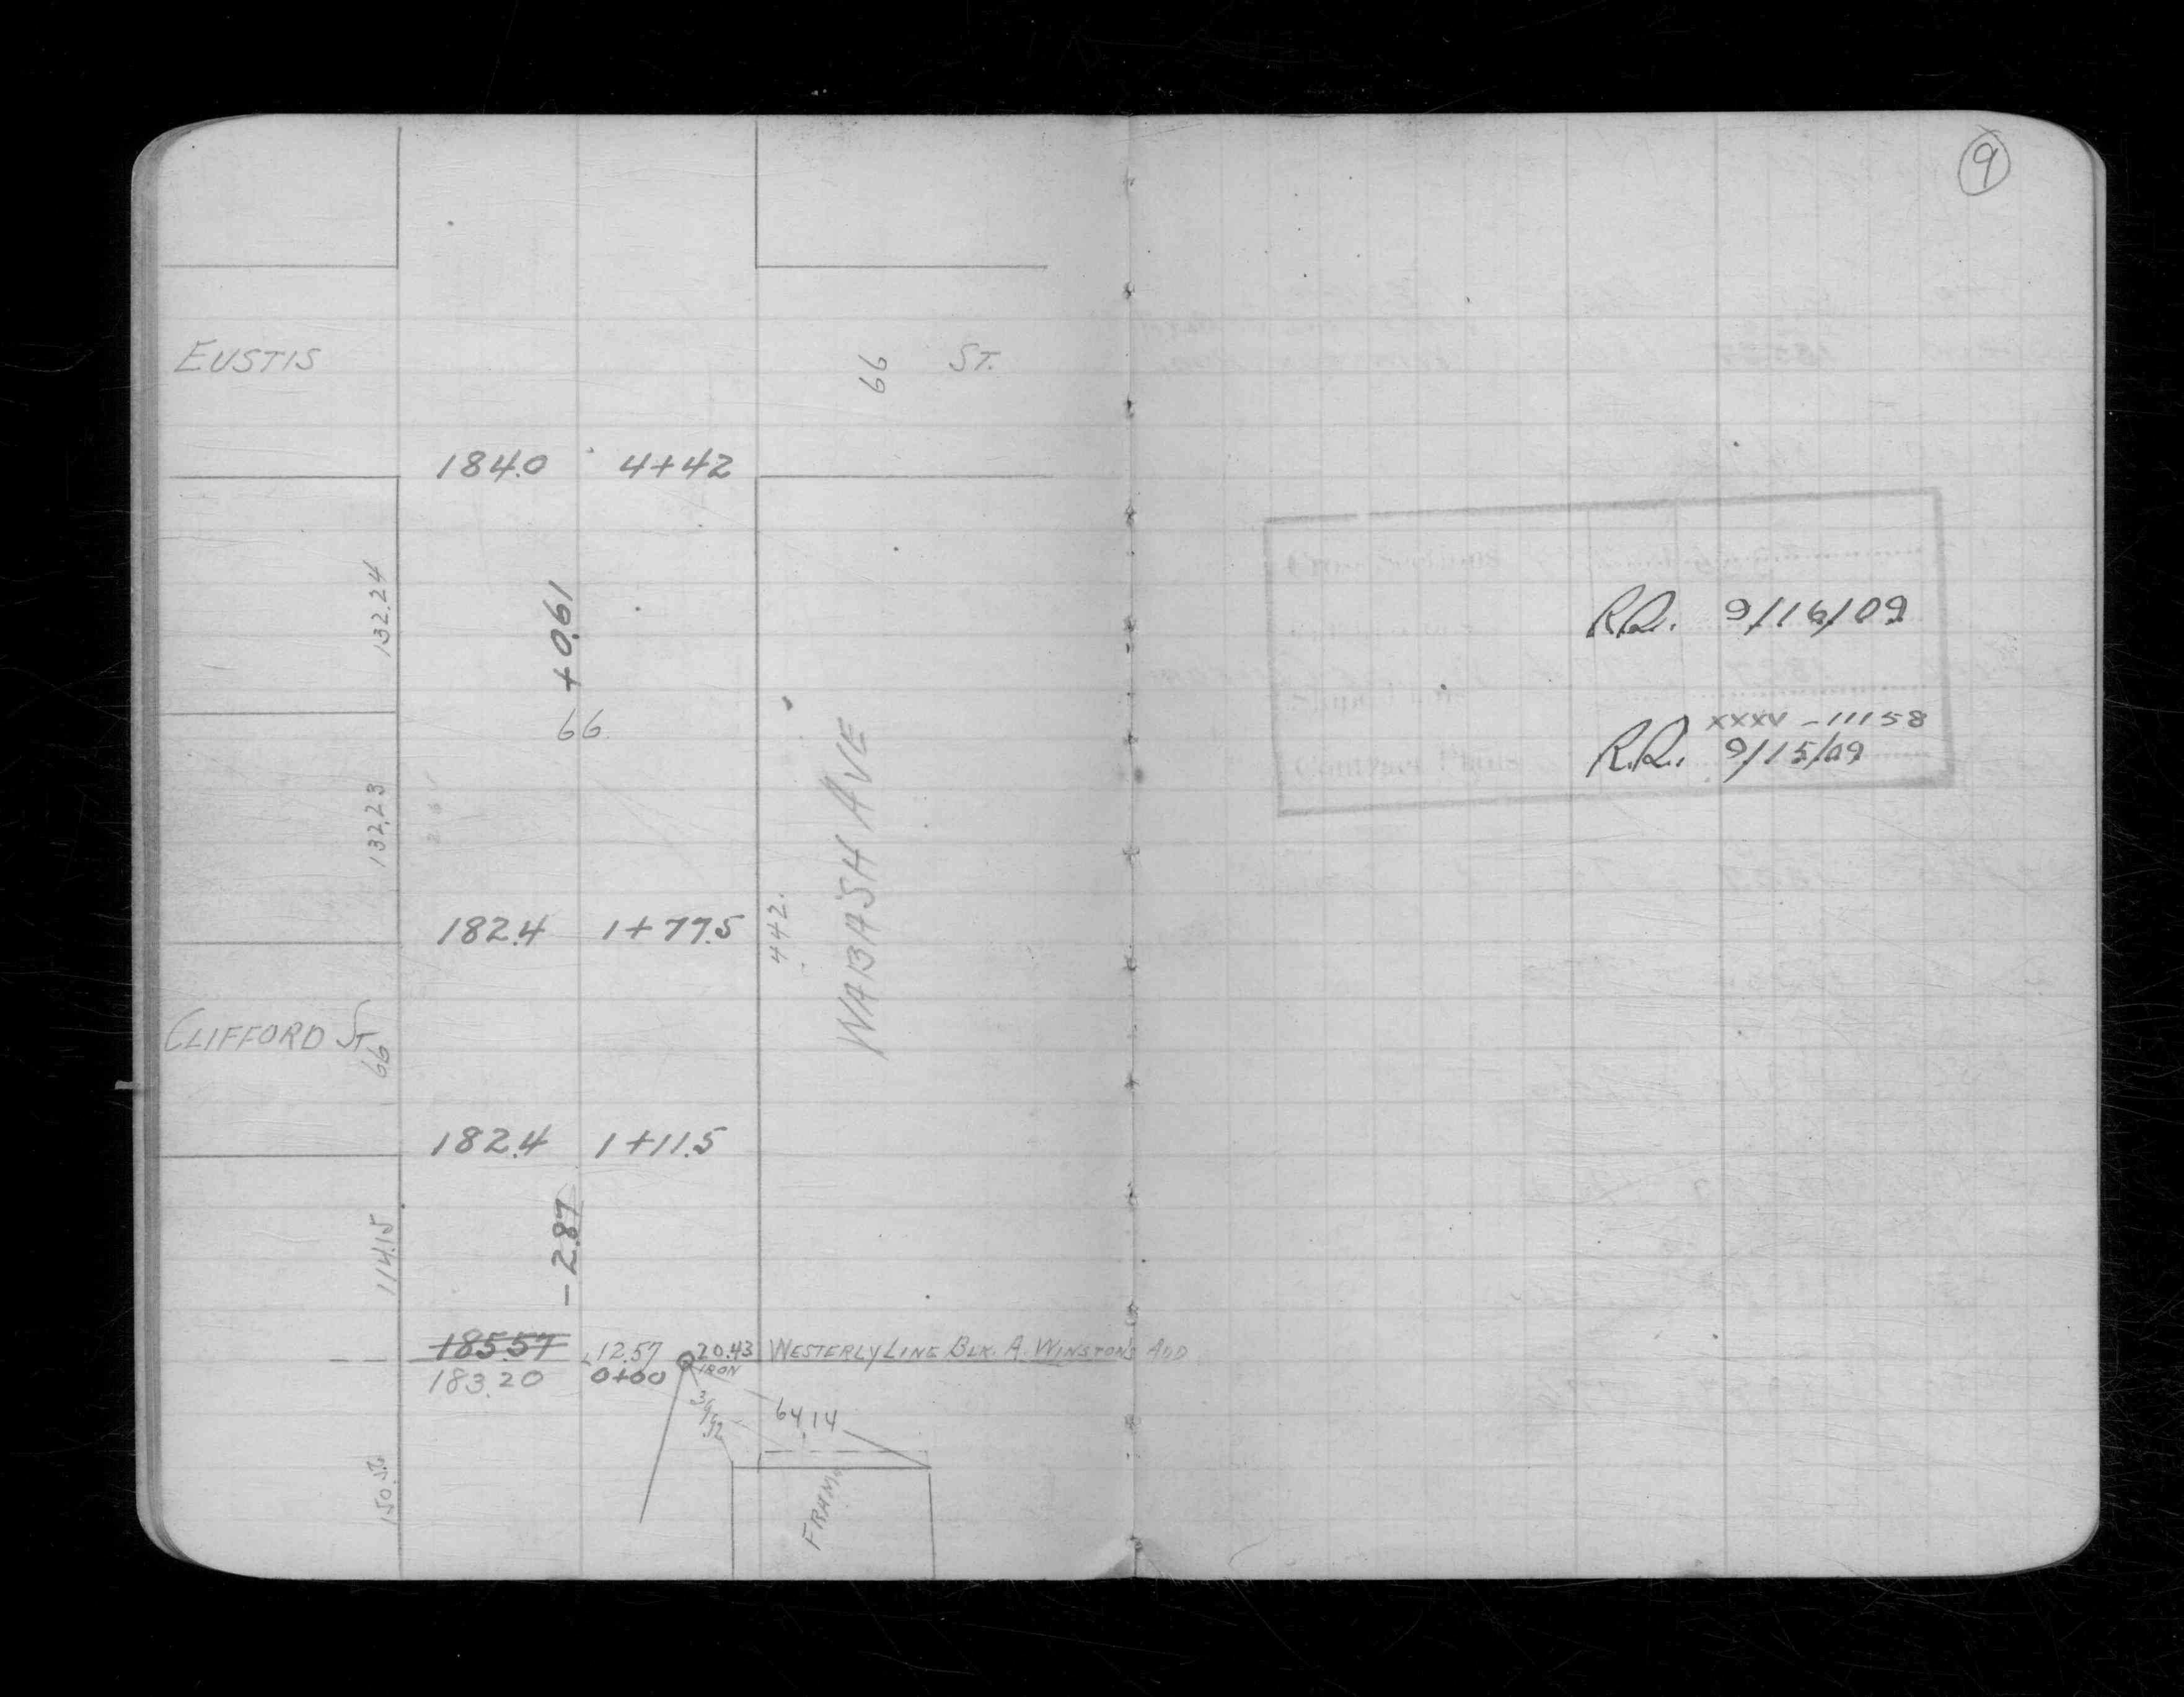 9
EUSTIS
66
ST.
184.0 4+42
132.24
+0.61
66
132.23
WABASH AVE
442.
182.4 1+77.5
CLIFFORD ST
66
182.4 1+11.5
114.15
-2.87
185.57
12.57
20.43
WESTERLY LINE BLK. A. WINSTON'S ADD
183.20
0+00
IRON
64.14
150.56
FRAME
R.R. 9/16/09
XXXV - 11158
R.R. 9/15/09
Contract Plans